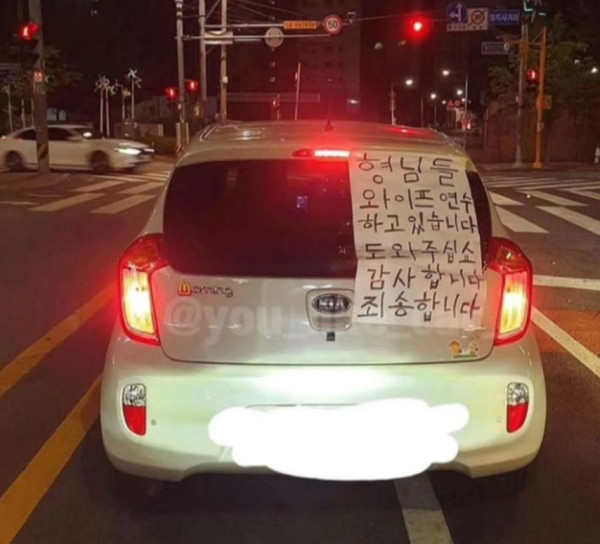 형님들
와이프 연수
하고있습니다
도와주십쇼
감사합니다
죄송합니다
Morning
KIA
50